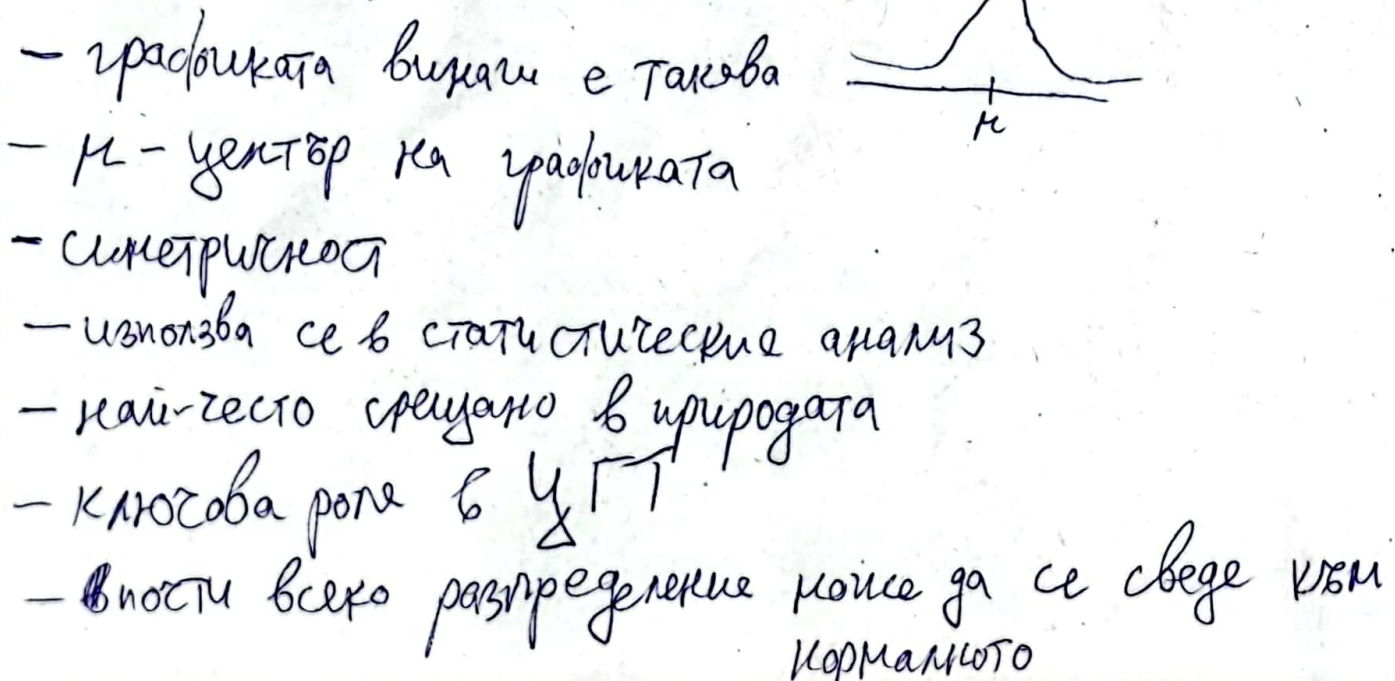 - графиката винаги е такава
μ
- μ - център на графиката
- симетричност
- използва се в статистические анализ
- най-често срещано в природата
- ключова роля в ЦГТ
- почти всяко разпределение може да се сведе към
нормалното